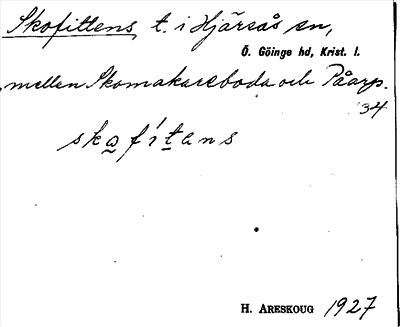 Skofittens, t. i Hjärsås sn,
Ö. Göinge hd, Krist. l.
mellan Skomakareboda och Påarp.
34
skofítans
H. Areskoug 1927